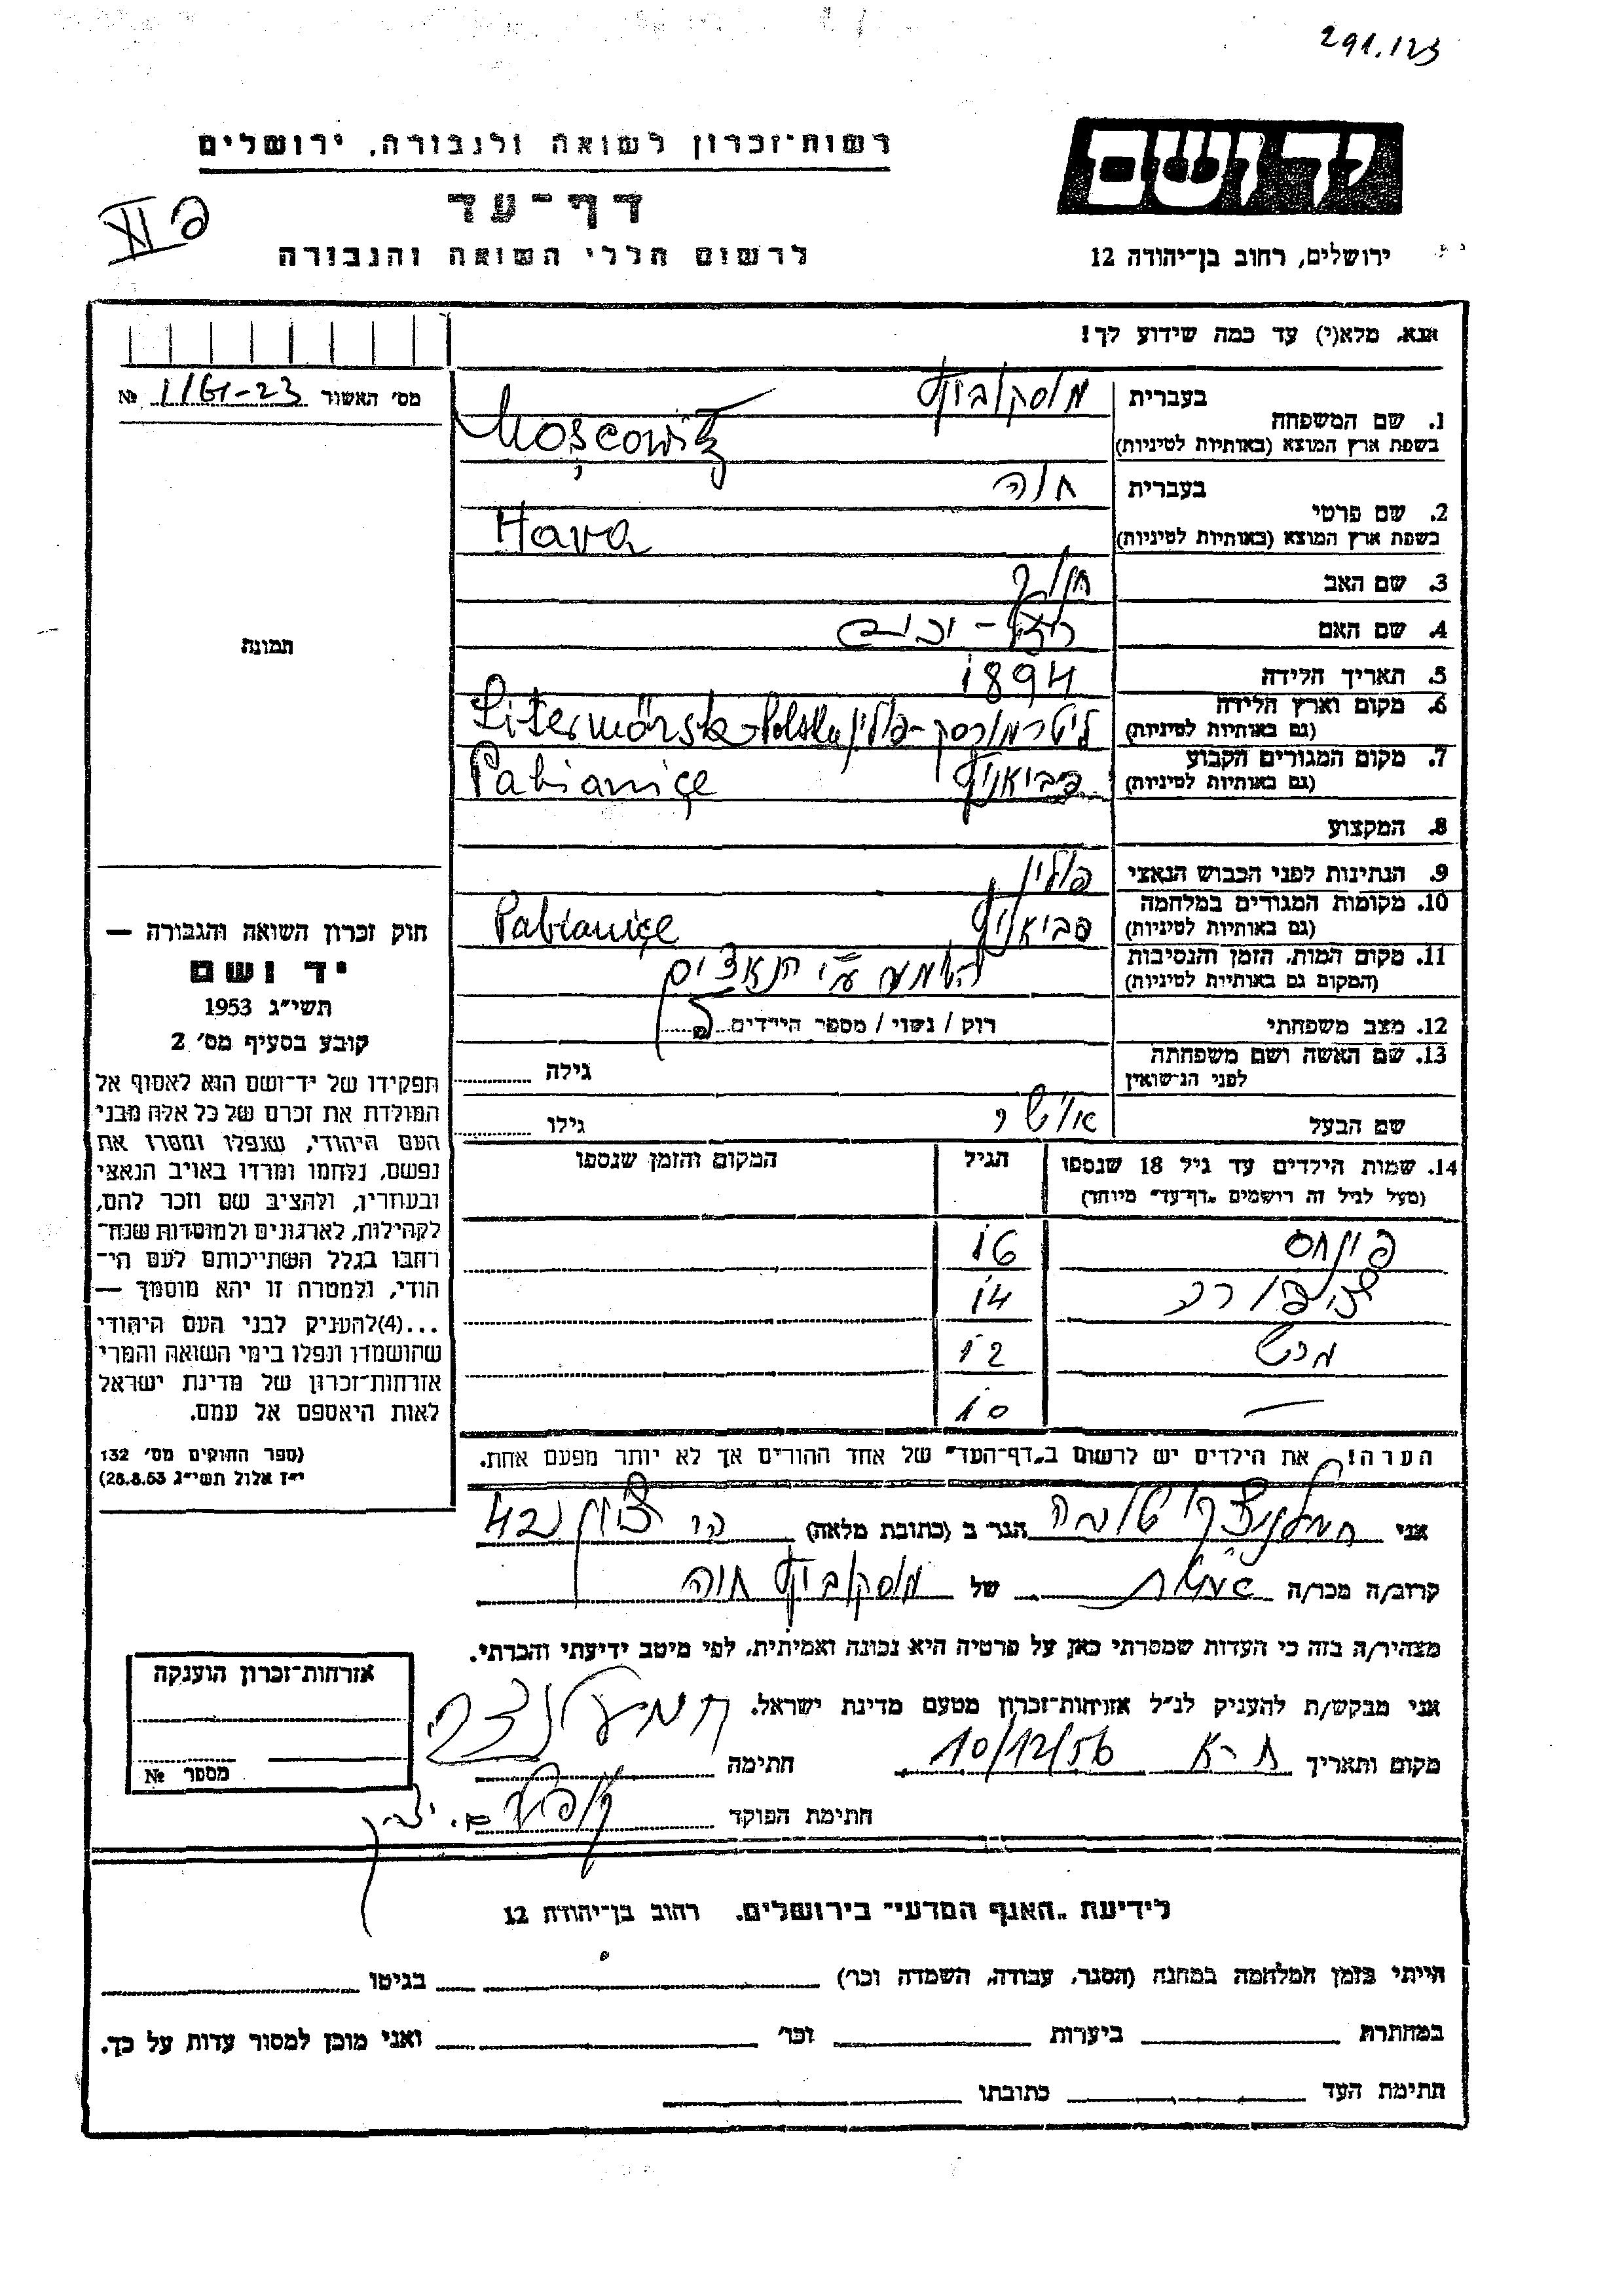 291.123
רשות־זכרון לשואה ולגבורה, ירושלים
יד ושם
דף־עד
לרשום חללי השואה והגבורה
ירושלים, רחוב בן־יהודה 12
אנא, מלא(י) עד כמה שידוע לך!
מס׳ האשור 23-
№
1. שם המשפחה
בעברית מוסקוביץ
בשפת ארץ המוצא (באותיות לטיניות) Moscowitz
2. שם פרטי
בעברית חוה
בשפת ארץ המוצא (באותיות לטיניות) Hava
3. שם האב
4. שם האם
5. תאריך הלידה 1894
6. מקום וארץ הלידה
(גם באותיות לטיניות) ליטרמורסק-פולין Litermörsk-Polska
7. מקום המגורים הקבוע
(גם באותיות לטיניות) פביאניץ Pabianiçe
8. המקצוע
9. הנתינות לפני הכבוש הנאצי פולין
10. מקומות המגורים במלחמה
(גם באותיות לטיניות) פביאניץ Pabianiçe
11. מקום המות, הזמן והנסיבות
(המקום גם באותיות לטיניות) ע״י הנאצים
12. מצב משפחתי רוק / נשוי / מספר הילדים
13. שם האשה ושם משפחתה
לפני הנישואין גילה
שם הבעל גילו
14. שמות הילדים עד גיל 18 שנספו הגיל המקום והזמן שנספו
(מעל לגיל זה רושמים „דף־עד״ מיוחד)
פינחס 16
ציפורה 14
12
— 10
הערה! את הילדים יש לרשום ב„דף־העד״ של אחד ההורים אך לא יותר מפעם אחת.
תמונה
חוק זכרון השואה והגבורה —
יד ושם
תשי״ג 1953
קובע בסעיף מס׳ 2
תפקידו של יד־ושם הוא לאסוף אל
המולדת את זכרם של כל אלה מבני
העם היהודי, שנפלו ומסרו את
נפשם, נלחמו ומרדו באויב הנאצי
ובעוזריו, ולהציב שם וזכר להם,
לקהילות, לארגונים ולמוסדות שנח־
רבו בגלל השתייכותם לעם הי־
הודי, ולמטרה זו יהא מוסמך —
...(4)להעניק לבני העם היהודי
שהושמדו ונפלו בימי השואה והמרי
אזרחות־זכרון של מדינת ישראל
לאות היאספם אל עמם.
(ספר החוקים מס׳ 132
י״ז אלול תשי״ג 28.8.53)
אני הגר ב (כתובת מלאה) הר ציון 42
קרוב/ה מכר/ה של מוסקוביץ חוה
מצהיר/ה בזה כי העדות שמסרתי כאן על פרטיה היא נכונה ואמיתית, לפי מיטב ידיעתי והכרתי.
אני מבקש/ת להעניק לנ״ל אזרחות־זכרון מטעם מדינת ישראל.
מקום ותאריך ת-א 10/12/56 חתימה
חתימת הפוקד
אזרחות־זכרון הוענקה
מספר №
לידיעת „האגף המדעי״ בירושלים, רחוב בן־יהודה 12
הייתי בזמן המלחמה במחנה (הסגר, עבודה, השמדה וכר׳) בגיטו
במחתרת ביערות וכר׳ ואני מוכן למסור עדות על כך.
חתימת העד כתובתו